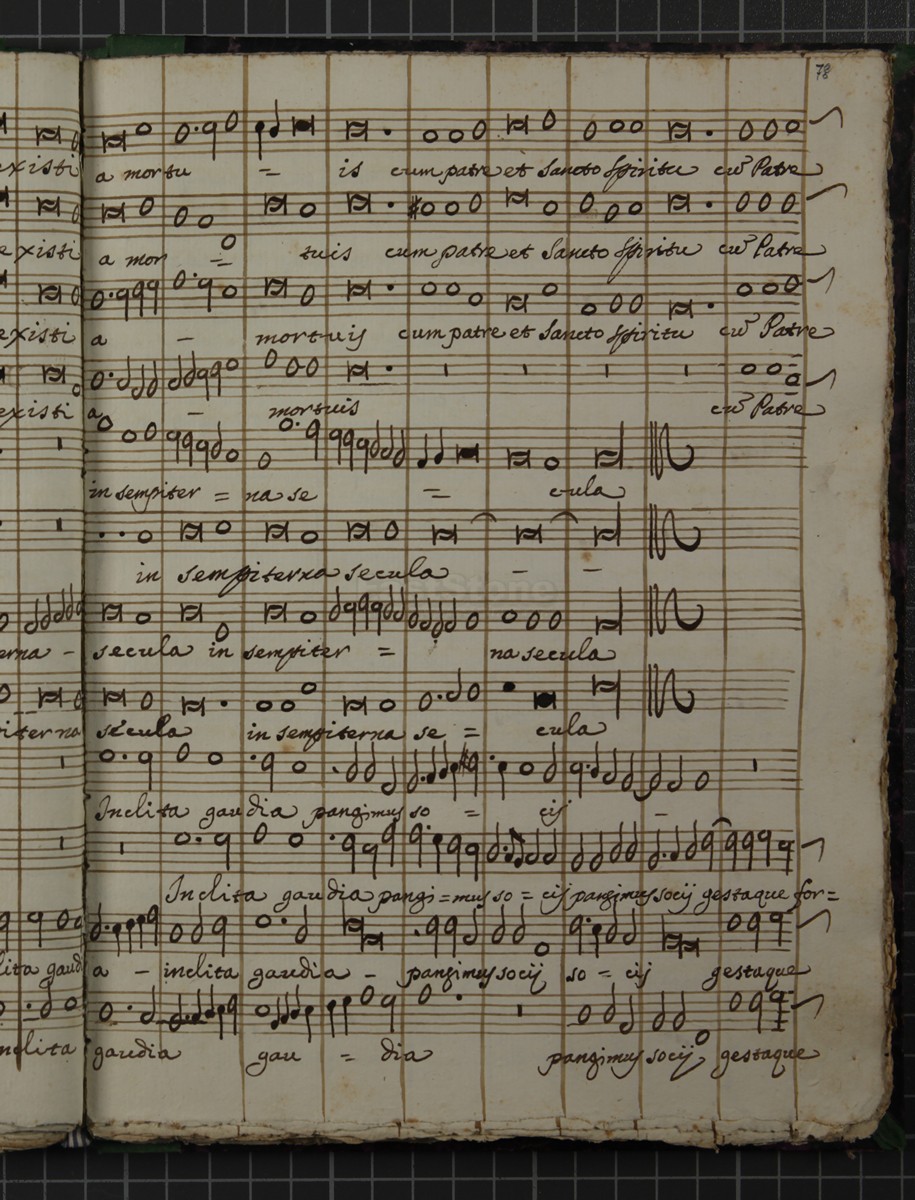 78
existi a mortu = is cum patre et Sancto Spiritu cũ Patre
existi a mor = tuis cum patre et Sancto Spiritu cũ Patre
existi a - mortuis cum patre et Sancto Spiritu cũ Patre
existi a - mortuis cũ Patre
in sempiter = na se = cula
in sempiterna secula - -
erna - secula in sempiter = na secula
piterna secula in sempiterna se = cula
Inclita gaudia pangimus so = cij -
Inclita gaudia pangi = mus so = cij pangimus socij gestaque for =
lita gaud a - inclita gaudia - pangimus socij so = cij gestaque
nclita gaudia gau = dia pangimus socij gestaque